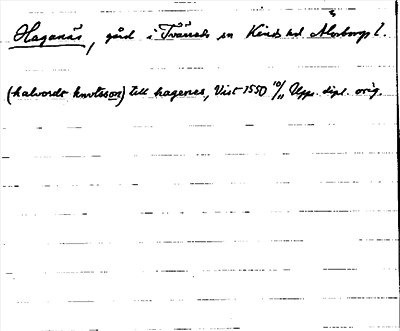 Haganäs, gård i Tvärreds sn Kinds hd Älvsborgs l.
(halvordt knvtsson) till hagenes, Vist 1550 10/11 Upps. dipl. orig.